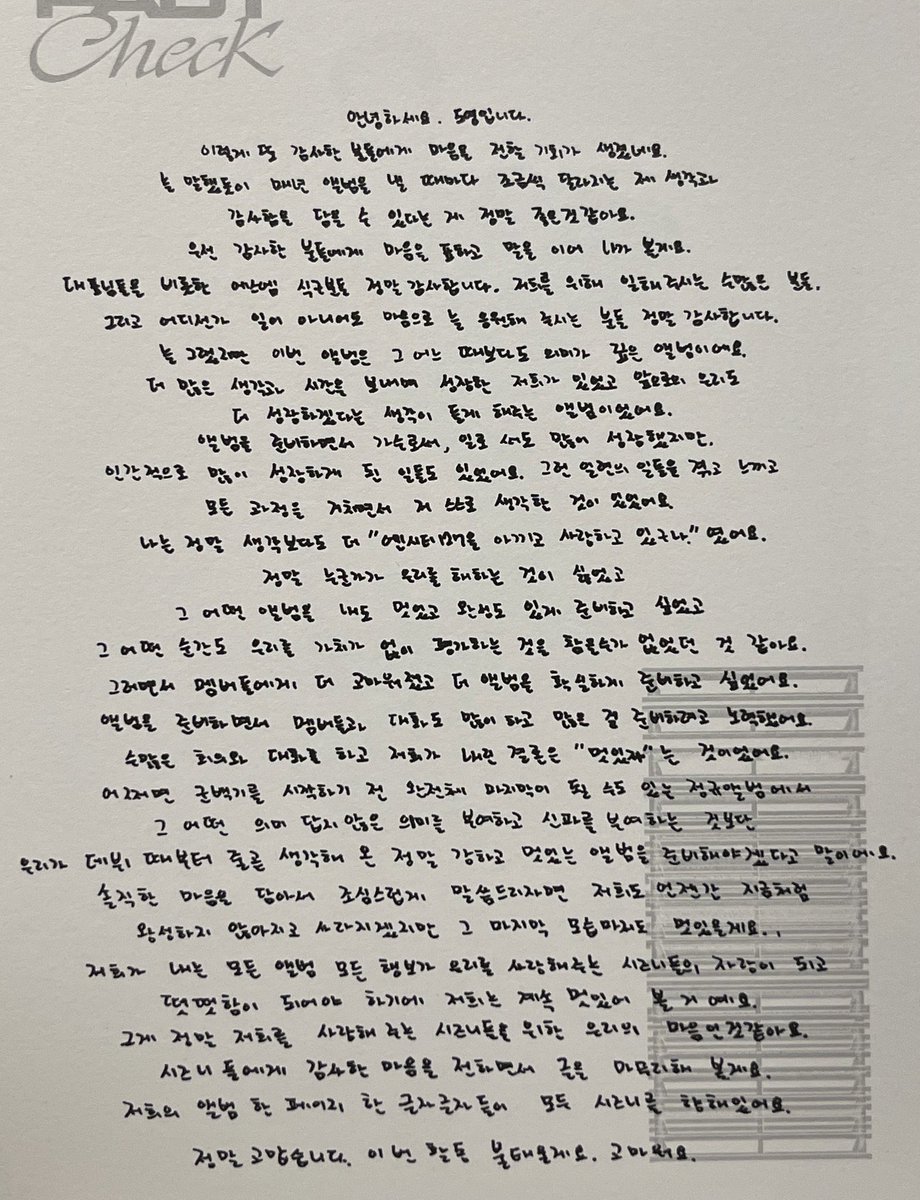 FACT
Check
안녕하세요. 도영입니다.
이렇게 또 감사한 분들에게 마음을 전할 기회가 생겼네요.
늘 말했듯이 매년 앨범을 낼 때마다 조금씩 달라지는 제 생각과
감사함을 담을 수 있다는 게 정말 좋은것같아요.
우선 감사한 분들에게 마음을 표하고 말을 이어 나가 볼게요.
대표님들을 비롯한 에스엠 식구분들 정말 감사합니다. 저희를 위해 일해주시는 수많은 분들.
그리고 어디선가 일이 아니어도 마음으로 늘 응원해 주시는 분들 정말 감사합니다.
늘 그랬지만 이번 앨범은 그 어느 때보다도 의미가 깊은 앨범이에요.
더 많은 생각과 시간을 보내며 성장한 저희가 있었고 앞으로의 우리도
더 성장하겠다는 생각이 들게 해주는 앨범이었어요.
앨범을 준비하면서 가수로서, 일로 서도 많이 성장했지만,
인간적으로 많이 성장하게 된 일들도 있었어요. 그런 일련의 일들을 겪고 느끼고
모든 과정을 거치면서 저 스스로 생각한 것이 있었어요
나는 정말 생각보다도 더 "엔시티127을 아끼고 사랑하고 있구나." 였어요.
정말 누군가가 우리를 해하는 것이 싫었고
그 어떤 앨범을 내도 멋있고 완성도 있게 준비하고 싶었고
그 어떤 순간도 우리를 가치가 없이 평가하는 것을 참을수가 없었던 것 같아요.
그러면서 멤버들에게 더 고마워졌고 더 앨범을 확실하게 준비하고 싶었어요.
앨범을 준비하면서 멤버들과 대화도 많이 하고 많은 걸 준비하려고 노력했어요.
수많은 회의와 대화를 하고 저희가 내린 결론은 "멋있자"는 것이었어요.
어쩌면 군백기를 시작하기 전 완전체 마지막이 될 수도 있는 정규앨범에서
그 어떤 의미 답지 않은 의미를 부여하고 신파를 부여하는 것보단
우리가 데뷔 때부터 줄곧 생각해 온 정말 강하고 멋있는 앨범을 준비해야겠다고 말이에요.
솔직한 마음을 담아서 조심스럽게 말씀드리자면 저희도 언젠간 지금처럼
왕성하지 않아지고 사라지겠지만 그 마지막 모습마저도 멋있을게요..
저희가 내는 모든 앨범 모든 행보가 우리를 사랑해주는 시즈니들의 자랑이 되고
떳떳함이 되어야 하기에 저희는 계속 멋있어 볼 거 예요.
그게 정말 저희를 사랑해 주는 시즈니들을 위한 우리의 마음인것같아요.
시즈니 들에게 감사한 마음을 전하면서 글을 마무리해 볼게요.
저희의 앨범 한 페이지 한 글자글자들이 모두 시즈니를 향해있어요.
정말 고맙습니다. 이번 활동 불태울게요. 고마워요.